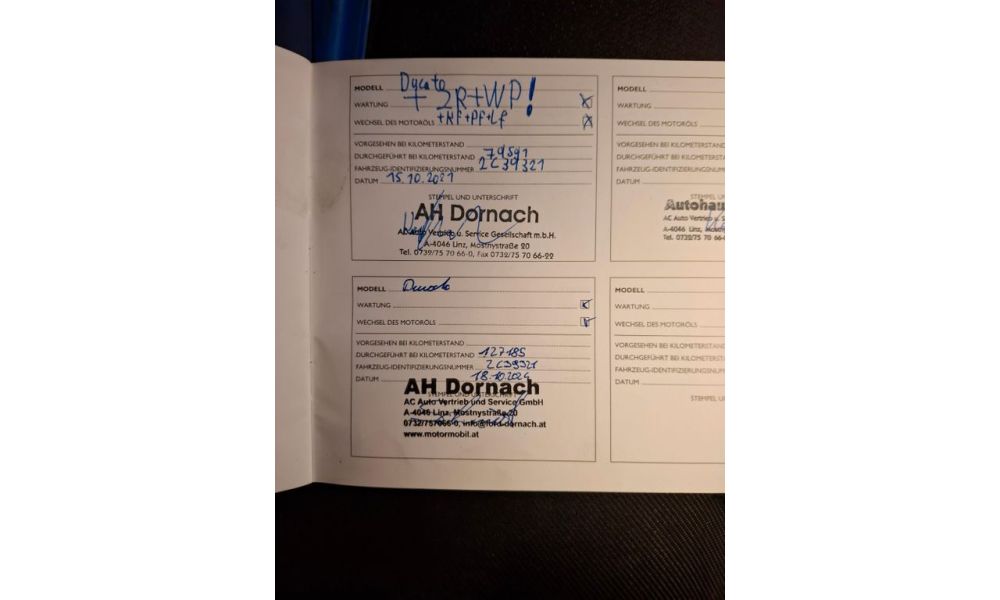 MODELL Ducato
WARTUNG + ZR+WP!
WECHSEL DES MOTORÖLS +KF+PF+LF
VORGESEHEN BEI KILOMETERSTAND
DURCHGEFÜHRT BEI KILOMETERSTAND 79591
FAHRZEUG-IDENTIFIZIERUNGSNUMMER 2C39321
DATUM 15.10.2021
STEMPEL UND UNTERSCHRIFT
AH Dornach
AC Auto Vertrieb u. Service Gesellschaft m.b.H.
A-4046 Linz, Mostnystraße 20
Tel. 0732/75 70 66-0, Fax 0732/75 70 66-22
MODELL Ducato
WARTUNG
WECHSEL DES MOTORÖLS
VORGESEHEN BEI KILOMETERSTAND
DURCHGEFÜHRT BEI KILOMETERSTAND 127185
FAHRZEUG-IDENTIFIZIERUNGSNUMMER 2C39321
DATUM 18.10.2024
STEMPEL UND UNTERSCHRIFT
AH Dornach
AC Auto Vertrieb und Service GmbH
A-4046 Linz, Mostnystraße 20
0732/757066-0, info@ford-dornach.at
www.motormobil.at
MODELL
WARTUNG
WECHSEL DES MOTORÖLS
VORGESEHEN BEI KILOMETERSTAND
DURCHGEFÜHRT BEI KILOMETERSTAND
FAHRZEUG-IDENTIFIZIERUNGSNUMM
DATUM
STEMPEL U
Autohau
AC Auto Vertrieb u. S
A-4046 Linz, Mostny
Tel. 0732/75 70 66-
MODELL
WARTUNG
WECHSEL DES MOTORÖLS
VORGESEHEN BEI KILOMETERSTAND
DURCHGEFÜHRT BEI KILOMETERSTAN
FAHRZEUG-IDENTIFIZIERUNGSNUMM
DATUM
STEMPEL U